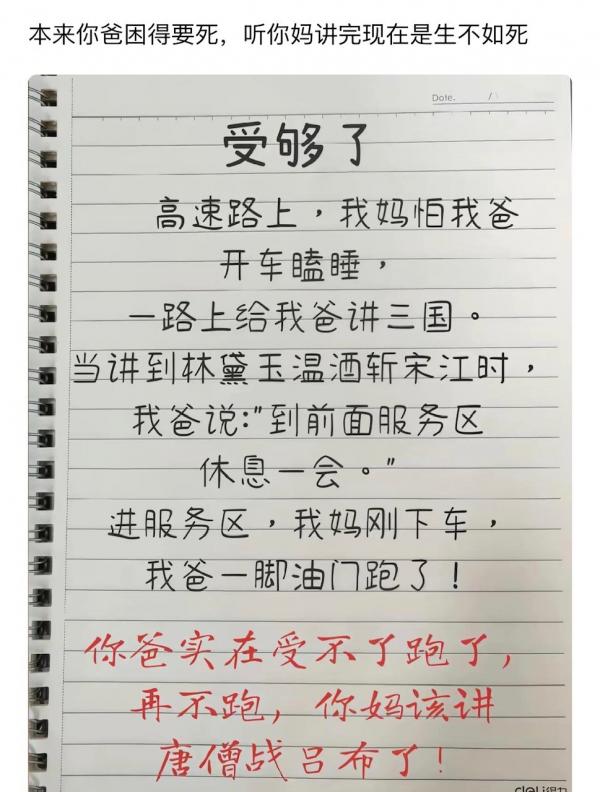 本来你爸困得要死，听你妈讲完现在是生不如死
Date. /
受够了
高速路上，我妈怕我爸
开车瞌睡，
一路上给我爸讲三国。
当讲到林黛玉温酒斩宋江时，
我爸说:"到前面服务区
休息一会。"
进服务区，我妈刚下车，
我爸一脚油门跑了！
你爸实在受不了跑了，
再不跑，你妈该讲
唐僧战吕布了！
deli得力